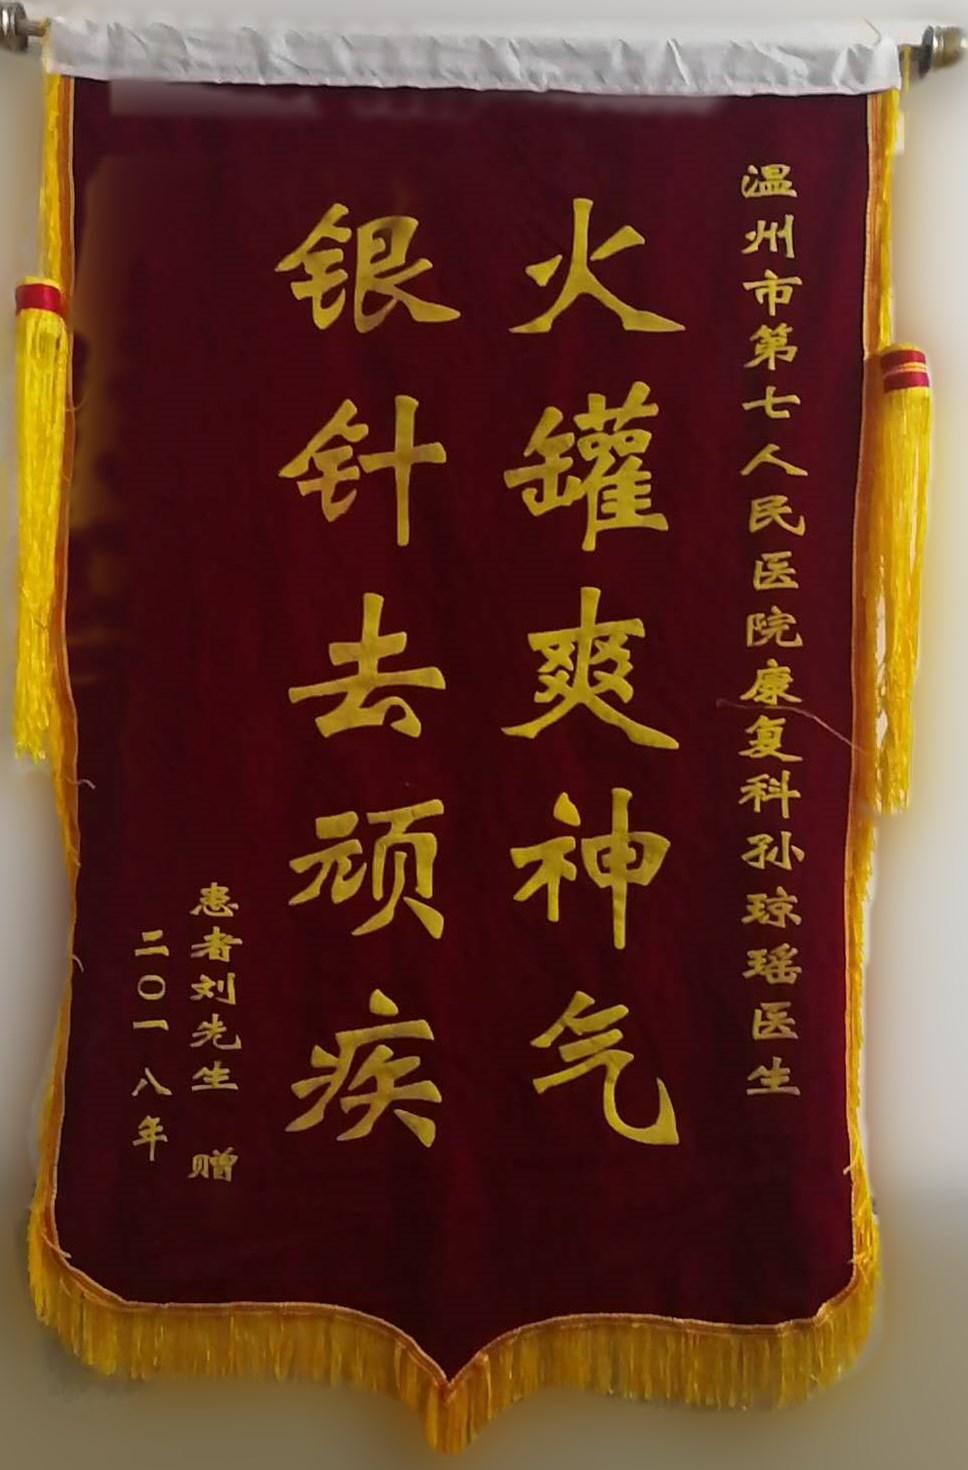 温州市第七人民医院康复科孙琼瑶医生
火罐爽神气
银针去顽疾
患者刘先生 赠
二〇一八年